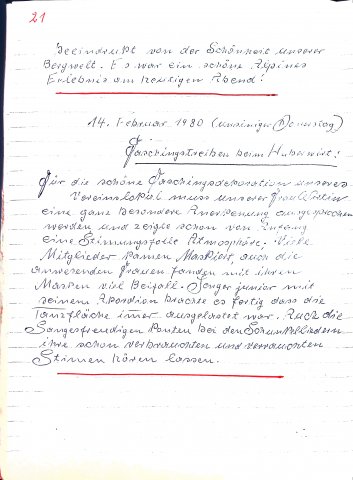 21
Beeindrukt von der Schönheit unserer
Bergwelt. Es war ein schöne Alpines
Erlebnis am heutigen Abend!
14. Februar 1980 (unsiniger Donnstag)
Faschingstreiben beim Huberwirt!
Für die schöne Faschingsdekoration unseres
Vereinslokal muss unserer Frau
eine ganz besondere Anerkenung ausgesprochen
werden und zeigte schon von Anfang
eine Stimungsfolle Atmosphäre. Viele
Mitglieder kamen Maskiert, auch die
anwesenden Frauen fanden mit ihren
Masken viel Beifall. junior mit
seinem Akordion brachte es fertig dass die
Tanzfläche imer ausgelastet war. Auch die
Sangesfreudigen konten bei den Schunkelliedern
ihre schon verbrauchten und verrauchten
Stimen hören lassen.